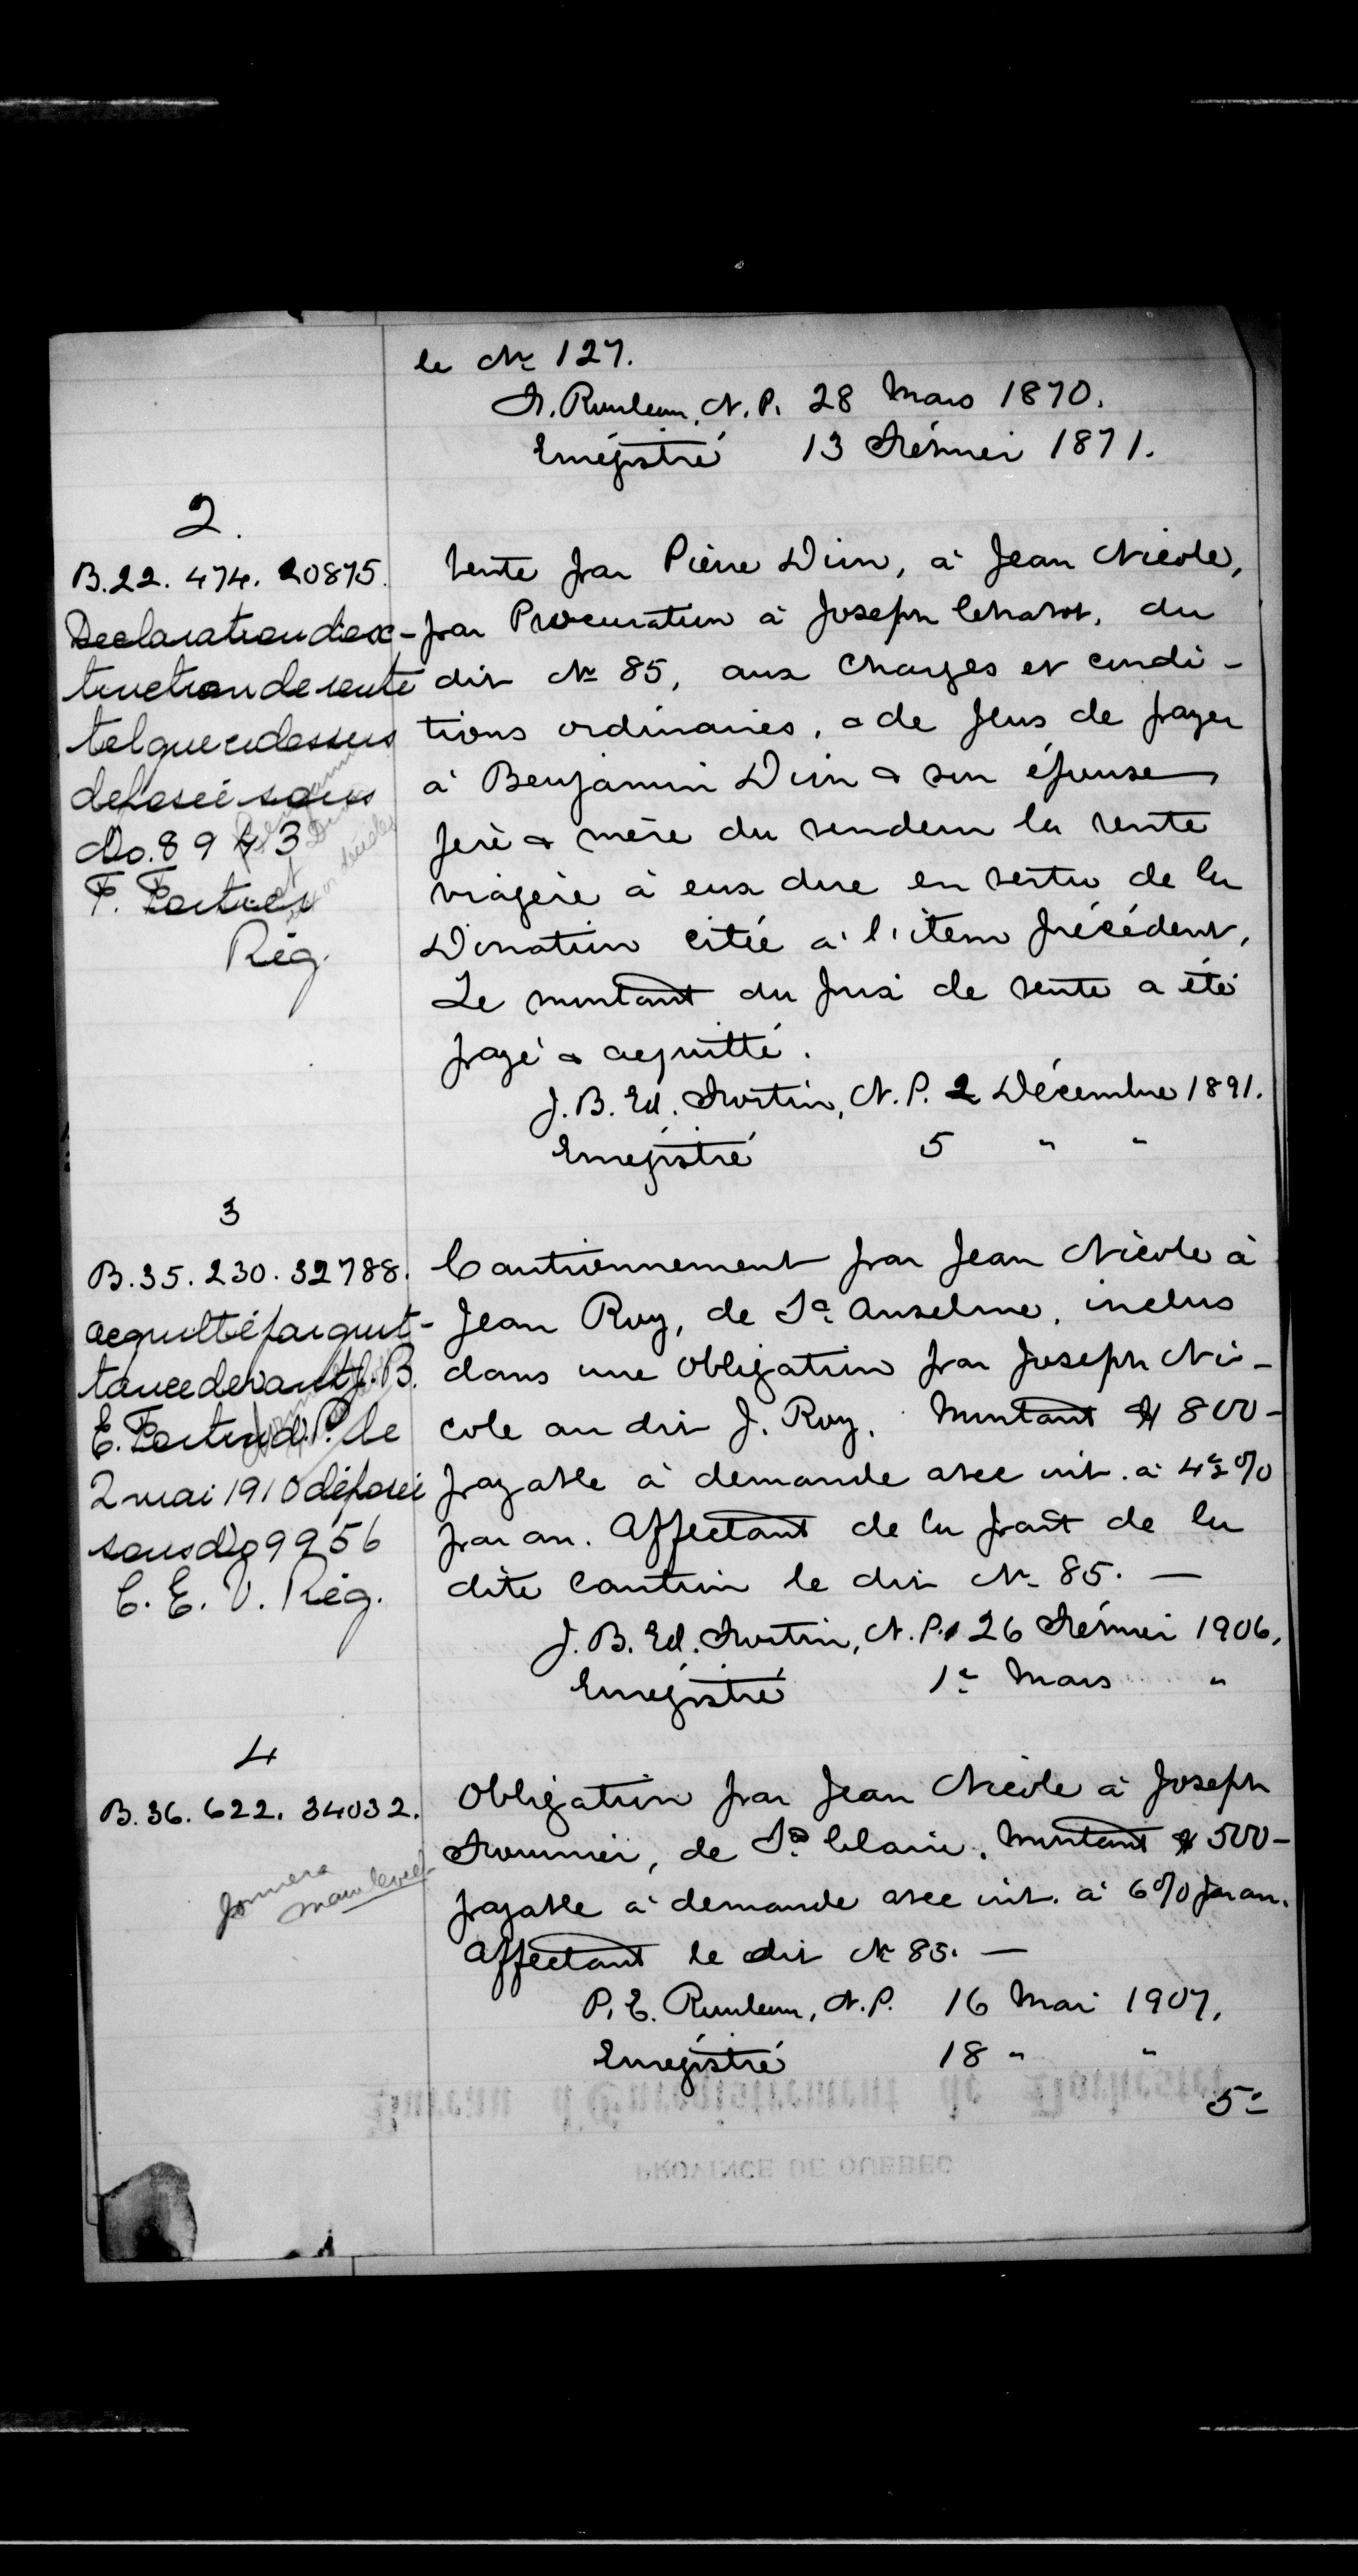 le No 127.
F. Rouleau, N. P. 28 Mars 1870.
Enrégistré 13 Février 1871.
2.
B. 22. 474. 20875.
Declaration d'ex-
tinction de rente
tel que ci dessus
deposée sous
No. 8943
F. Fortier
Rég.
Vente par Pierre Dion, à Jean Nicole,
par Procuration à Joseph Chabot, du
dit No 85, aux charges et condi-
tions ordinaires, & de plus de payer
à Benjamin Dion & son épouse,
père & mère du vendeur la rente
viagère à eux due en vertu de la
Donation citée à l'item précédent.
Le montant du prix de vente a été
payé & acquitté.
J. B. Ed. Fortin, N. P. 2 Décembre 1891.
Enrégistré 5 " "
3
B. 35. 230. 32788.
acquitté par quit-
tance devant J. B.
E. Fortin N. P. le
2 mai 1910 déposée
sous No 9956
C. E. V. Rég.
Cautionnement par Jean Nicole à
Jean Roy, de St Anselme, inclus
dans une obligation par Joseph Ni-
cole au dit J. Roy. Montant $800-
payable à demande avec int. à 4½%
par an. Affectant de la part de la
dite caution le dit No 85. —
J. B. Ed. Fortin, N. P. 26 Février 1906.
Enrégistré 1er Mars "
4
B. 36. 622. 34032.
donnera
mainlevée
Obligation par Jean Nicole à Joseph
Fournier, de Ste Claire. Montant $500-
payable à demande avec int. à 6% par an.
Affectant le dit No 85. —
P. E. Rouleau, N. P. 16 Mai 1907.
Enrégistré 18 " "
5-
Bureau d'Enregistrement de Dorchester
PROVINCE DE QUEBEC